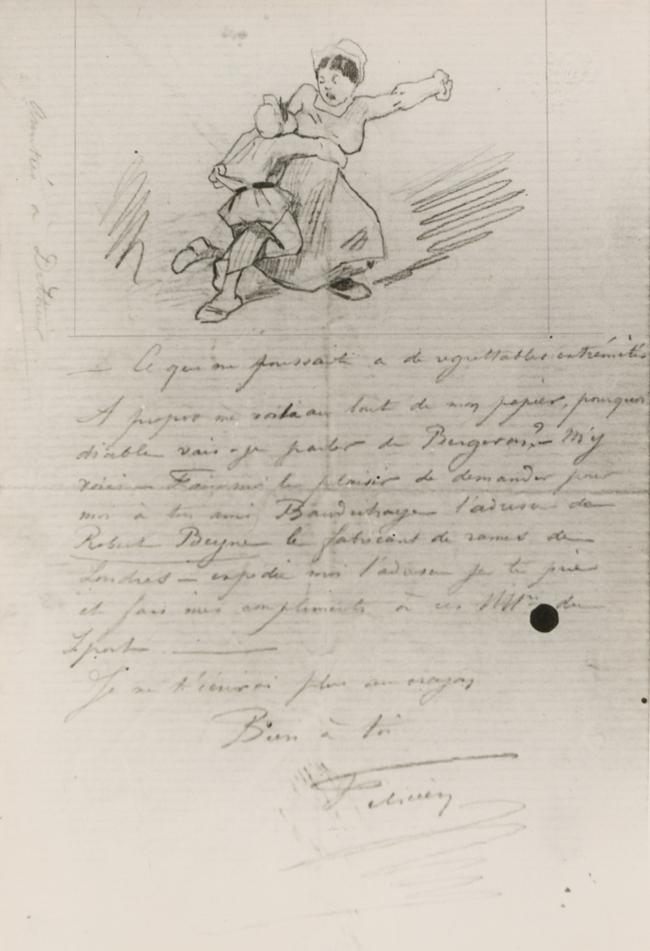 — Ce qui me poussait a de regrettables extrémités
A propos me voilà au bout de mon papier, pourquoi
diable vais-je parler de ? — M'y
voici — Fais moi le plaisir de demander pour
moi à ton ami l'adresse de
Robert le fabricant de rames de
Londres — expedie moi l'adresse je te prie
et fais mes compliments à ces MMrs du
Sport —
Je ne t'écrirai plus au crayon
Bien à toi